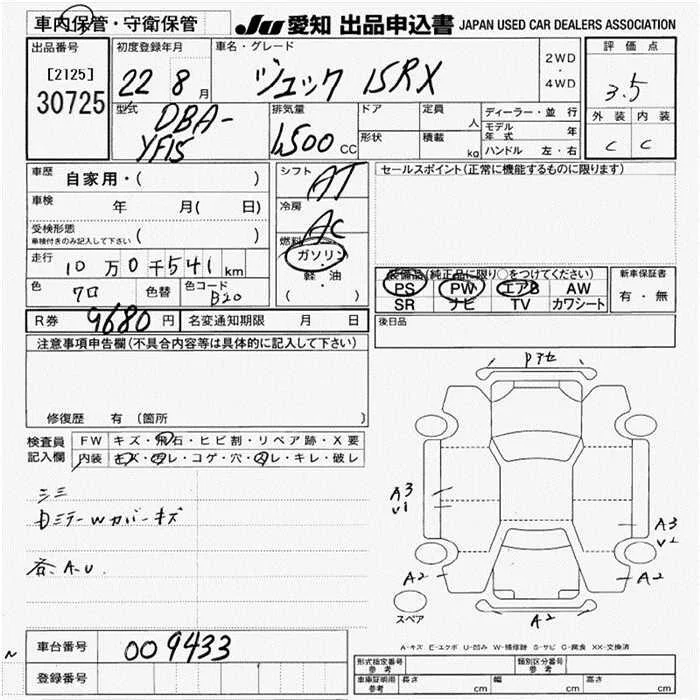 車内保管・守衛保管
JU 愛知 出品申込書 JAPAN USED CAR DEALERS ASSOCIATION
出品番号
[2125]
30725
初度登録年月
22 8月
車名・グレード
ジューク 15RX
2WD
・
4WD
評価点
3.5
外装 内装
C C
型式
DBA-
YF15
排気量
1,500 CC
ドア
形状
定員 人
積載 kg
ディーラー・並行
モデル年式 年
ハンドル 左・右
車歴 自家用・( )
車検 年 月( 日)
受検形態
車検付きのみ記入して下さい ( )
走行 10万0千541km
色 クロ 色替 色コード B20
シフト AT
冷房 AC
燃料
ガソリン
軽・油
( )
セールスポイント(正常に機能するものに限ります)
装備品(純正品に限り○をつけてください)
PS PW エアB AW
SR ナビ TV カワシート
新車保証書
有・無
R券 9680円 名変通知期限 月 日
後日品
注意事項申告欄(不具合内容等は具体的に記入して下さい)
修復歴 有 (箇所 )
検査員
記入欄
FW キズ・飛石・ヒビ割・リペア跡・X要
内装 キズ・汚レ・コゲ・穴・スレ・キレ・破レ
Wカバーキズ
各A.U.
Pアセ
A3
V1
A3
V2
A2
A2
A2
スペア
A-キズ E-エクボ U-凹み W-補修跡 S-サビ C-腐食 XX-交換済
車台番号 009433
登録番号
形式指定番号
参考
類別区分番号
参考
車庫証明用
参考
長さ cm 幅 cm 高さ cm